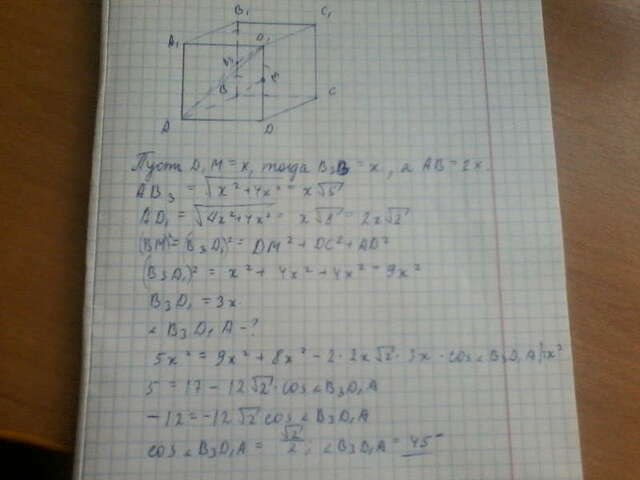 B₁ C₁
A₁ D₁
B₃ M
B C
A D
Пусть D₁M = x, тогда B₃B = x, а AB = 2x.
AB₃ = √x²+4x² = x√5
AD₁ = √4x²+4x² = x√8 = 2x√2
(BM)² = (B₃D₁)² = DM² + DC² + AD²
(B₃D₁)² = x² + 4x² + 4x² = 9x²
B₃D₁ = 3x
∠ B₃D₁A - ?
5x² = 9x² + 8x² - 2·2x√2·3x·cos∠B₃D₁A |:x²
5 = 17 - 12√2·cos∠B₃D₁A
-12 = -12√2 cos∠B₃D₁A
cos∠B₃D₁A = √2/2, ∠B₃D₁A = 45°